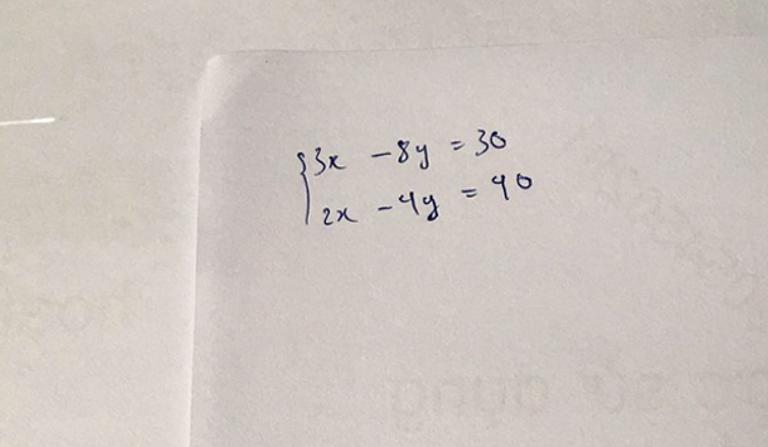 3x - 8y = 30
2x - 4y = 40